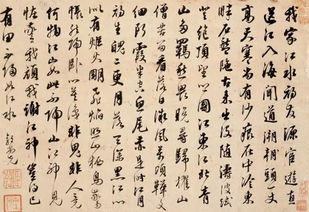 我家江水初發源宦遊直
送江入海聞道潮頭一丈
高天寒尚有沙痕在中泠南
畔石盤陀古來出沒隨濤波試
登絕頂望鄉國江南江北青
山多羈愁畏晚尋歸楫山
僧苦留看落日微風萬頃鞾文
細斷霞半空魚尾赤是時江月
初生魄二更月落天深黑江心
似有炬火明飛焰照山棲鳥驚
悵然歸臥心莫識非鬼非人竟
何物江山如此不歸山江神見
怪驚我頑我謝江神豈得已
有田不歸如江水